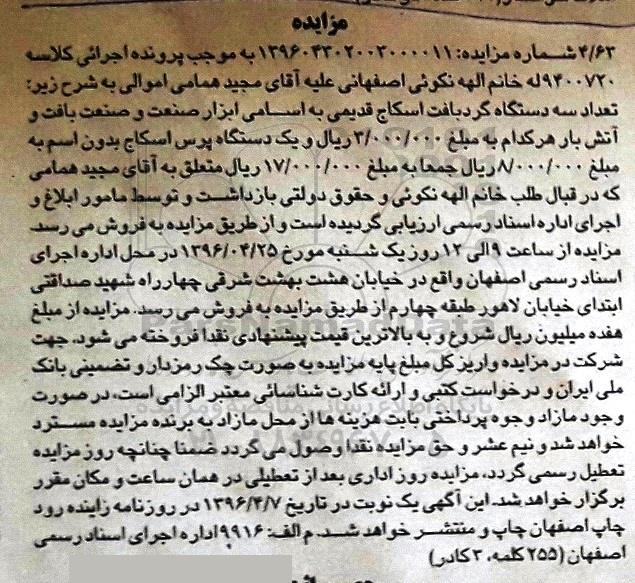 مزایده
۴/۶۳ شماره مزایده: ۱۳۹۶۰۴۳۰۲۰۰۳۰۰۰۰۱۱ به موجب پرونده اجرائی کلاسه
۹۴۰۰۷۲۰ له خانم الهه نکوئی اصفهانی علیه آقای مجید همامی اموالی به شرح زیر:
تعداد سه دستگاه گردبافت اسکاج قدیمی به اسامی ابزار صنعت و صنعت بافت و
آتش بار هرکدام به مبلغ ۳/۰۰۰/۰۰۰ ریال و یک دستگاه پرس اسکاج بدون اسم به
مبلغ ۸/۰۰۰/۰۰۰ ریال جمعا به مبلغ ۱۷/۰۰۰/۰۰۰ ریال متعلق به آقای مجید همامی
که در قبال طلب خانم الهه نکوئی و حقوق دولتی بازداشت و توسط مامور ابلاغ و
اجرای اداره اسناد رسمی ارزیابی گردیده است و از طریق مزایده به فروش می رسد.
مزایده از ساعت ۹ الی ۱۲ روز یک شنبه مورخ ۱۳۹۶/۰۴/۲۵ در محل اداره اجرای
اسناد رسمی اصفهان واقع در خیابان هشت بهشت شرقی چهارراه شهید صداقتی
ابتدای خیابان لاهور طبقه چهارم از طریق مزایده به فروش می رسد. مزایده از مبلغ
هفده میلیون ریال شروع و به بالاترین قیمت پیشنهادی نقدا فروخته می شود. جهت
شرکت در مزایده واریز کل مبلغ پایه مزایده به صورت چک رمزدار و تضمینی بانک
ملی ایران و درخواست کتبی و ارائه کارت شناسائی معتبر الزامی است، در صورت
وجود مازاد وجوه پرداختی بابت هزینه ها از محل مازاد به برنده مزایده مسترد
خواهد شد و نیم عشر و حق مزایده نقدا وصول می گردد ضمنا چنانچه روز مزایده
تعطیل رسمی گردد، مزایده روز اداری بعد از تعطیلی در همان ساعت و مکان مقرر
برگزار خواهد شد. این آگهی یک نوبت در تاریخ ۱۳۹۶/۴/۷ در روزنامه زاینده رود
چاپ اصفهان چاپ و منتشر خواهد شد. م الف: ۹۹۱۶ اداره اجرای اسناد رسمی
اصفهان (۲۵۵ کلمه، ۳ کادر)